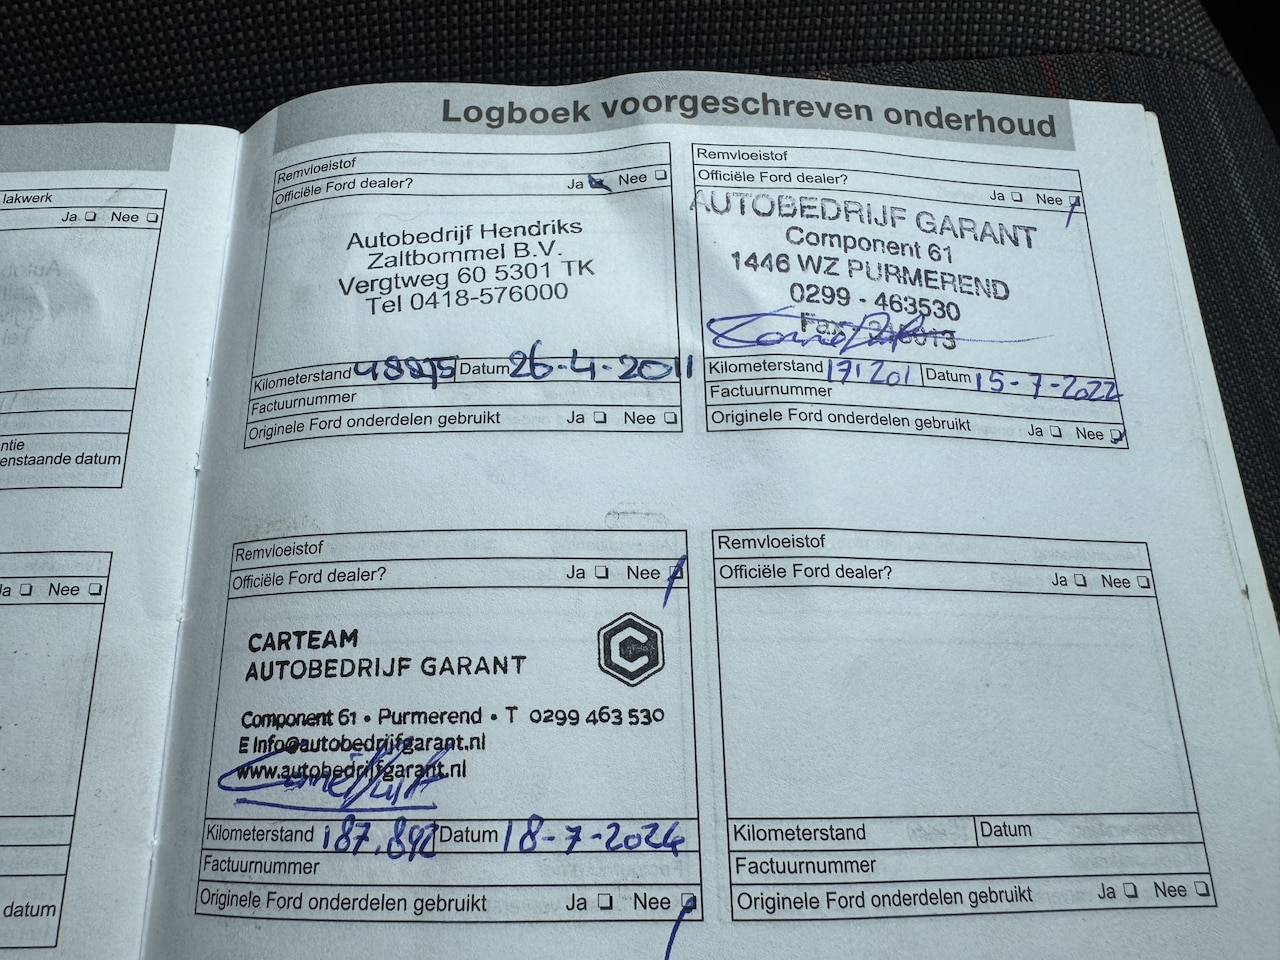 Logboek voorgeschreven onderhoud
lakwerk
Ja Nee
ntie
enstaande datum
Ja Nee
datum
Remvloeistof
Officiële Ford dealer? Ja Nee
Autobedrijf Hendriks
Zaltbommel B.V.
Vergtweg 60 5301 TK
Tel 0418-576000
Kilometerstand Datum 26-4-2011
Factuurnummer
Originele Ford onderdelen gebruikt Ja Nee
Remvloeistof
Officiële Ford dealer?
Ja Nee
AUTOBEDRIJF GARANT
Component 61
1446 WZ PURMEREND
0299 - 463530
Fax
Kilometerstand 171.201 Datum 15-7-2022
Factuurnummer
Originele Ford onderdelen gebruikt Ja Nee
Remvloeistof
Officiële Ford dealer? Ja Nee
CARTEAM
AUTOBEDRIJF GARANT
Component 61 • Purmerend • T 0299 463 530
E Info@autobedrijfgarant.nl
www.autobedrijfgarant.nl
Kilometerstand 187.892 Datum 18-7-2024
Factuurnummer
Originele Ford onderdelen gebruikt Ja Nee
Remvloeistof
Officiële Ford dealer? Ja Nee
Kilometerstand Datum
Factuurnummer
Originele Ford onderdelen gebruikt Ja Nee